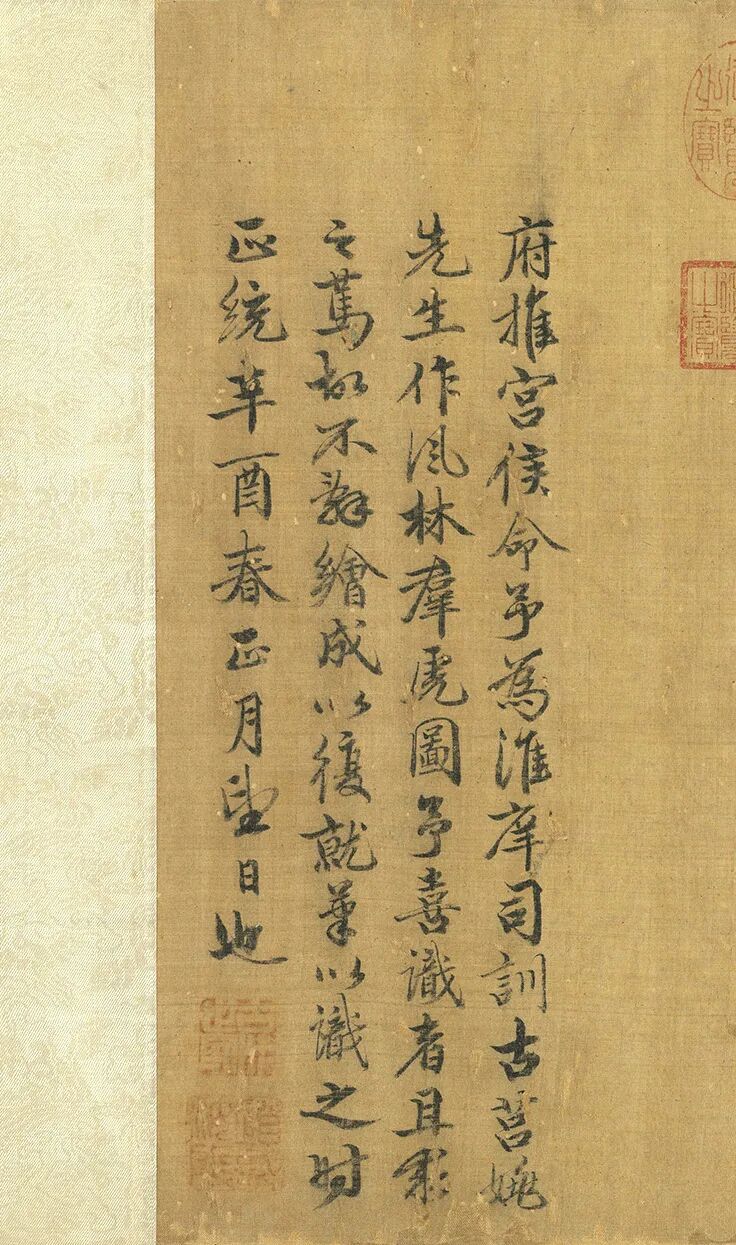 府推宮侯命予為淮庠司訓古莒姚
先生作風林羣虎圖予喜識者且求
之篤故不辭繪成以復就筆以識之時
正統辛酉春正月望日也